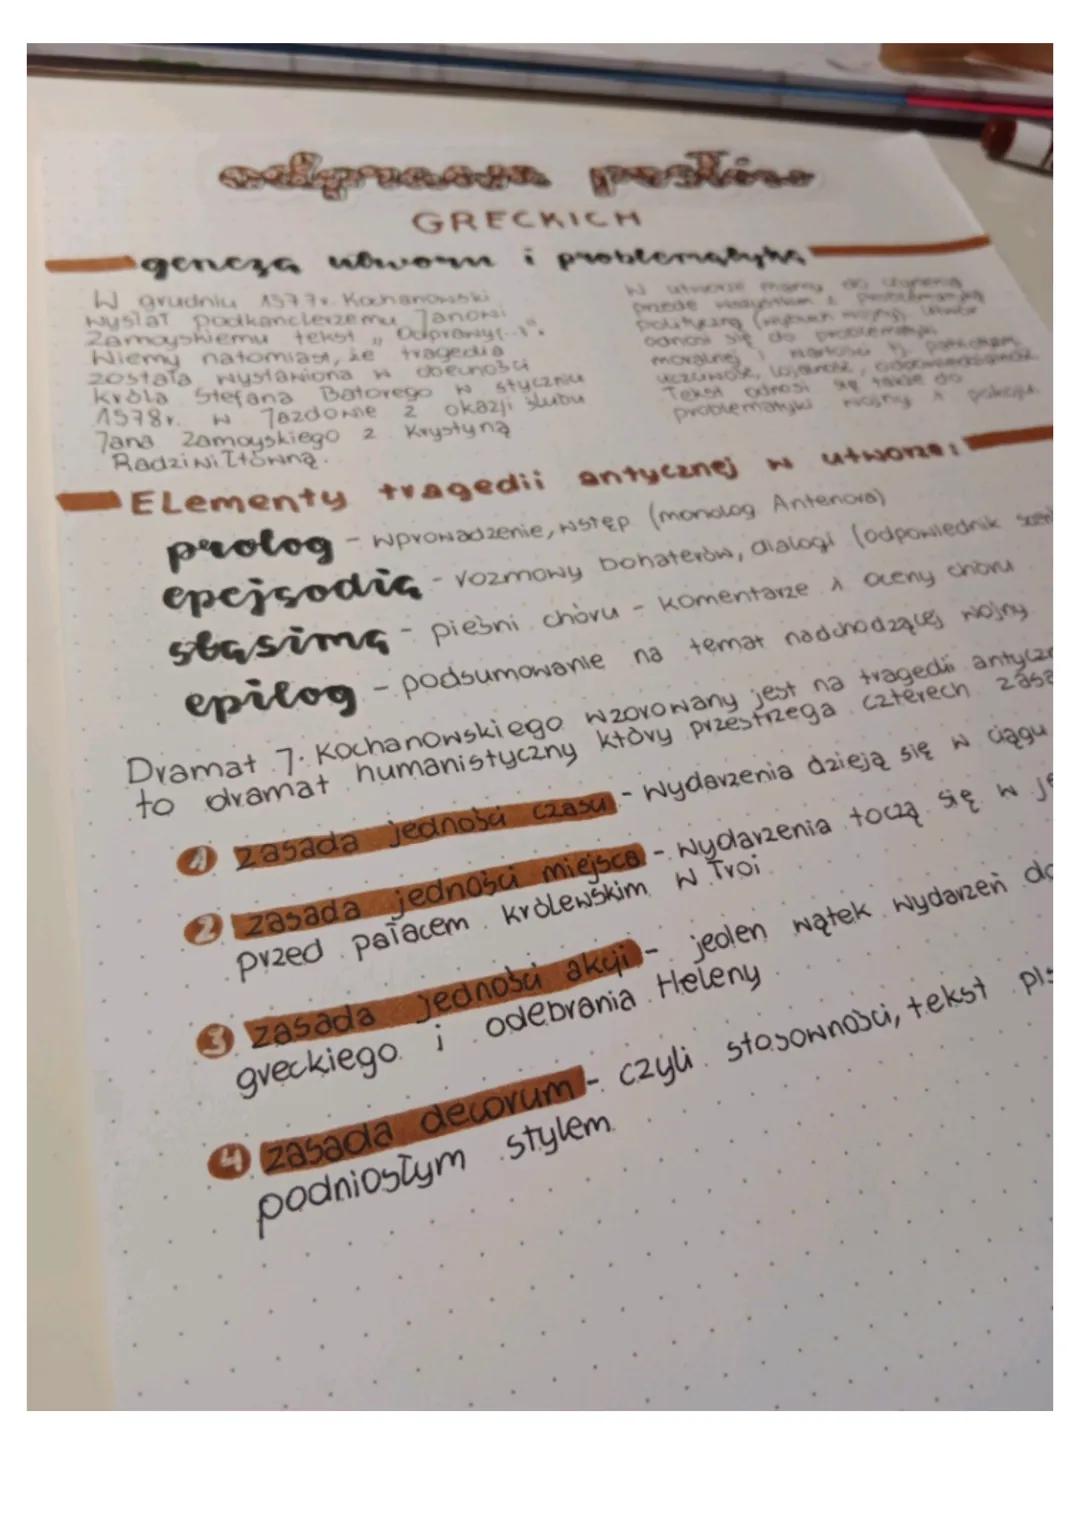 odprawa posłów
GRECKICH
geneza utworu i problematyka
W grudniu 1577r. Kochanowski
wysłał podkanclerzemu Janowi
Zamoyskiemu tekst „Odprawy(...)".
Wiemy natomiast, że tragedia
została wystawiona w obecności
króla Stefana Batorego w styczniu
1578r. w Jazdowie z okazji ślubu
Jana Zamoyskiego z Krystyną
Radziwiłłówną.
W utworze mamy do czynienia
przede wszystkim z problematyką
polityczną (wybuch wojny). Utwór
odnosi się do problematyki
moralnej i wartości tj. patriotyzm,
uczciwość, lojalność, odpowiedzialność
Tekst odnosi się także do
problematyki wojny i pokoju.
Elementy tragedii antycznej w utworze:
prolog - wprowadzenie, wstęp (monolog Antenora)
epejsodia - rozmowy bohaterów, dialogi (odpowiednik
stasima - pieśni chóru - komentarze i oceny chóru
epilog - podsumowanie na temat nadchodzącej wojny
Dramat J. Kochanowskiego wzorowany jest na tragedii
to dramat humanistyczny który przestrzega czterech
1 zasada jedności czasu - wydarzenia dzieją się w ciągu
2 zasada jedności miejsca - wydarzenia toczą się w
przed pałacem królewskim w Troi.
3 zasada jedności akcji - jeden wątek wydarzeń
greckiego i odebrania Heleny
4 zasada decorum - czyli stosowności, tekst
podniosłym stylem.